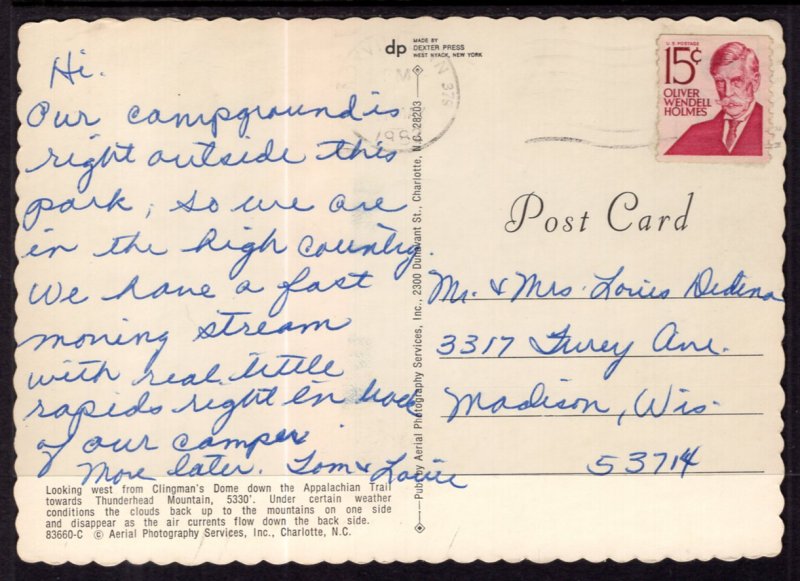 dp MADE BY
DEXTER PRESS
WEST NYACK, NEW YORK
U.S. POSTAGE
15¢
OLIVER
WENDELL
HOLMES
Hi.
Our campground is
right outside this
park, so we are
in the high country.
We have a fast
moving stream
with real little
rapids right in back
of our camper.
More later. Tom &
Looking west from Clingman's Dome down the Appalachian Trail
towards Thunderhead Mountain, 5330'. Under certain weather
conditions the clouds back up to the mountains on one side
and disappear as the air currents flow down the back side.
83660-C © Aerial Photography Services, Inc., Charlotte, N.C.
Pub. by Aerial Photography Services, Inc., 2300 Dunavant St., Charlotte, N.C. 28203
Post Card
Mr. & Mrs. Louis Dedena
3317 Furey Ave.
Madison, Wis.
53714